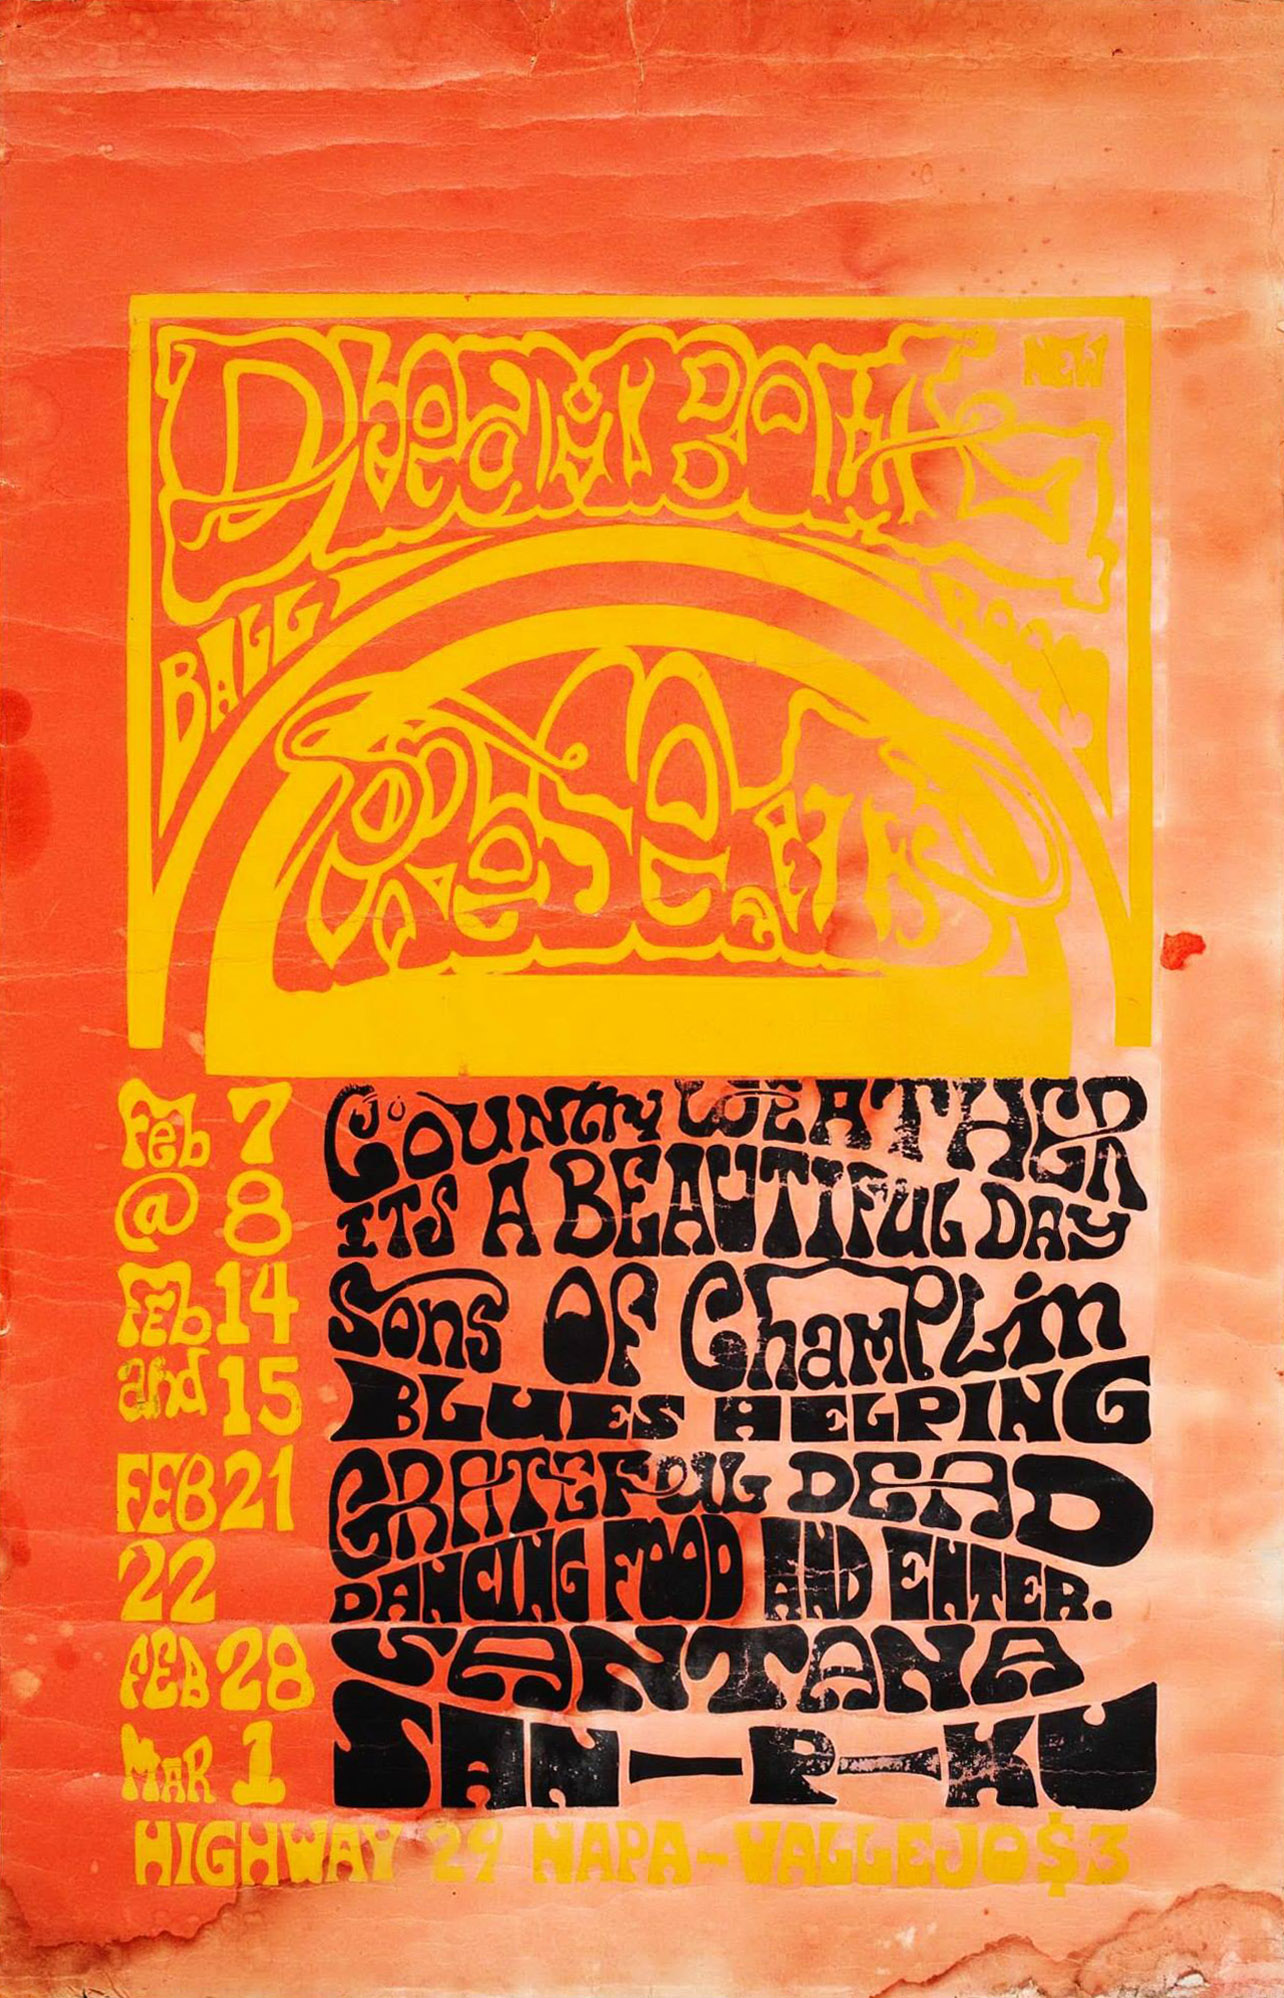 DREAM BOWL
NEW
BALL ROOM
presents
Feb 7 COUNTRY WEATHER
@ 8 ITS A BEAUTIFUL DAY
Feb 14 Sons OF Champlin
and 15 BLUES HELPING
FEB 21 GRATEFUL DEAD
22 DANCING FOOD AND ENTER.
FEB 28 SANTANA
MAR 1 SAN-P-KU
HIGHWAY 29 NAPA-VALLEJO $3